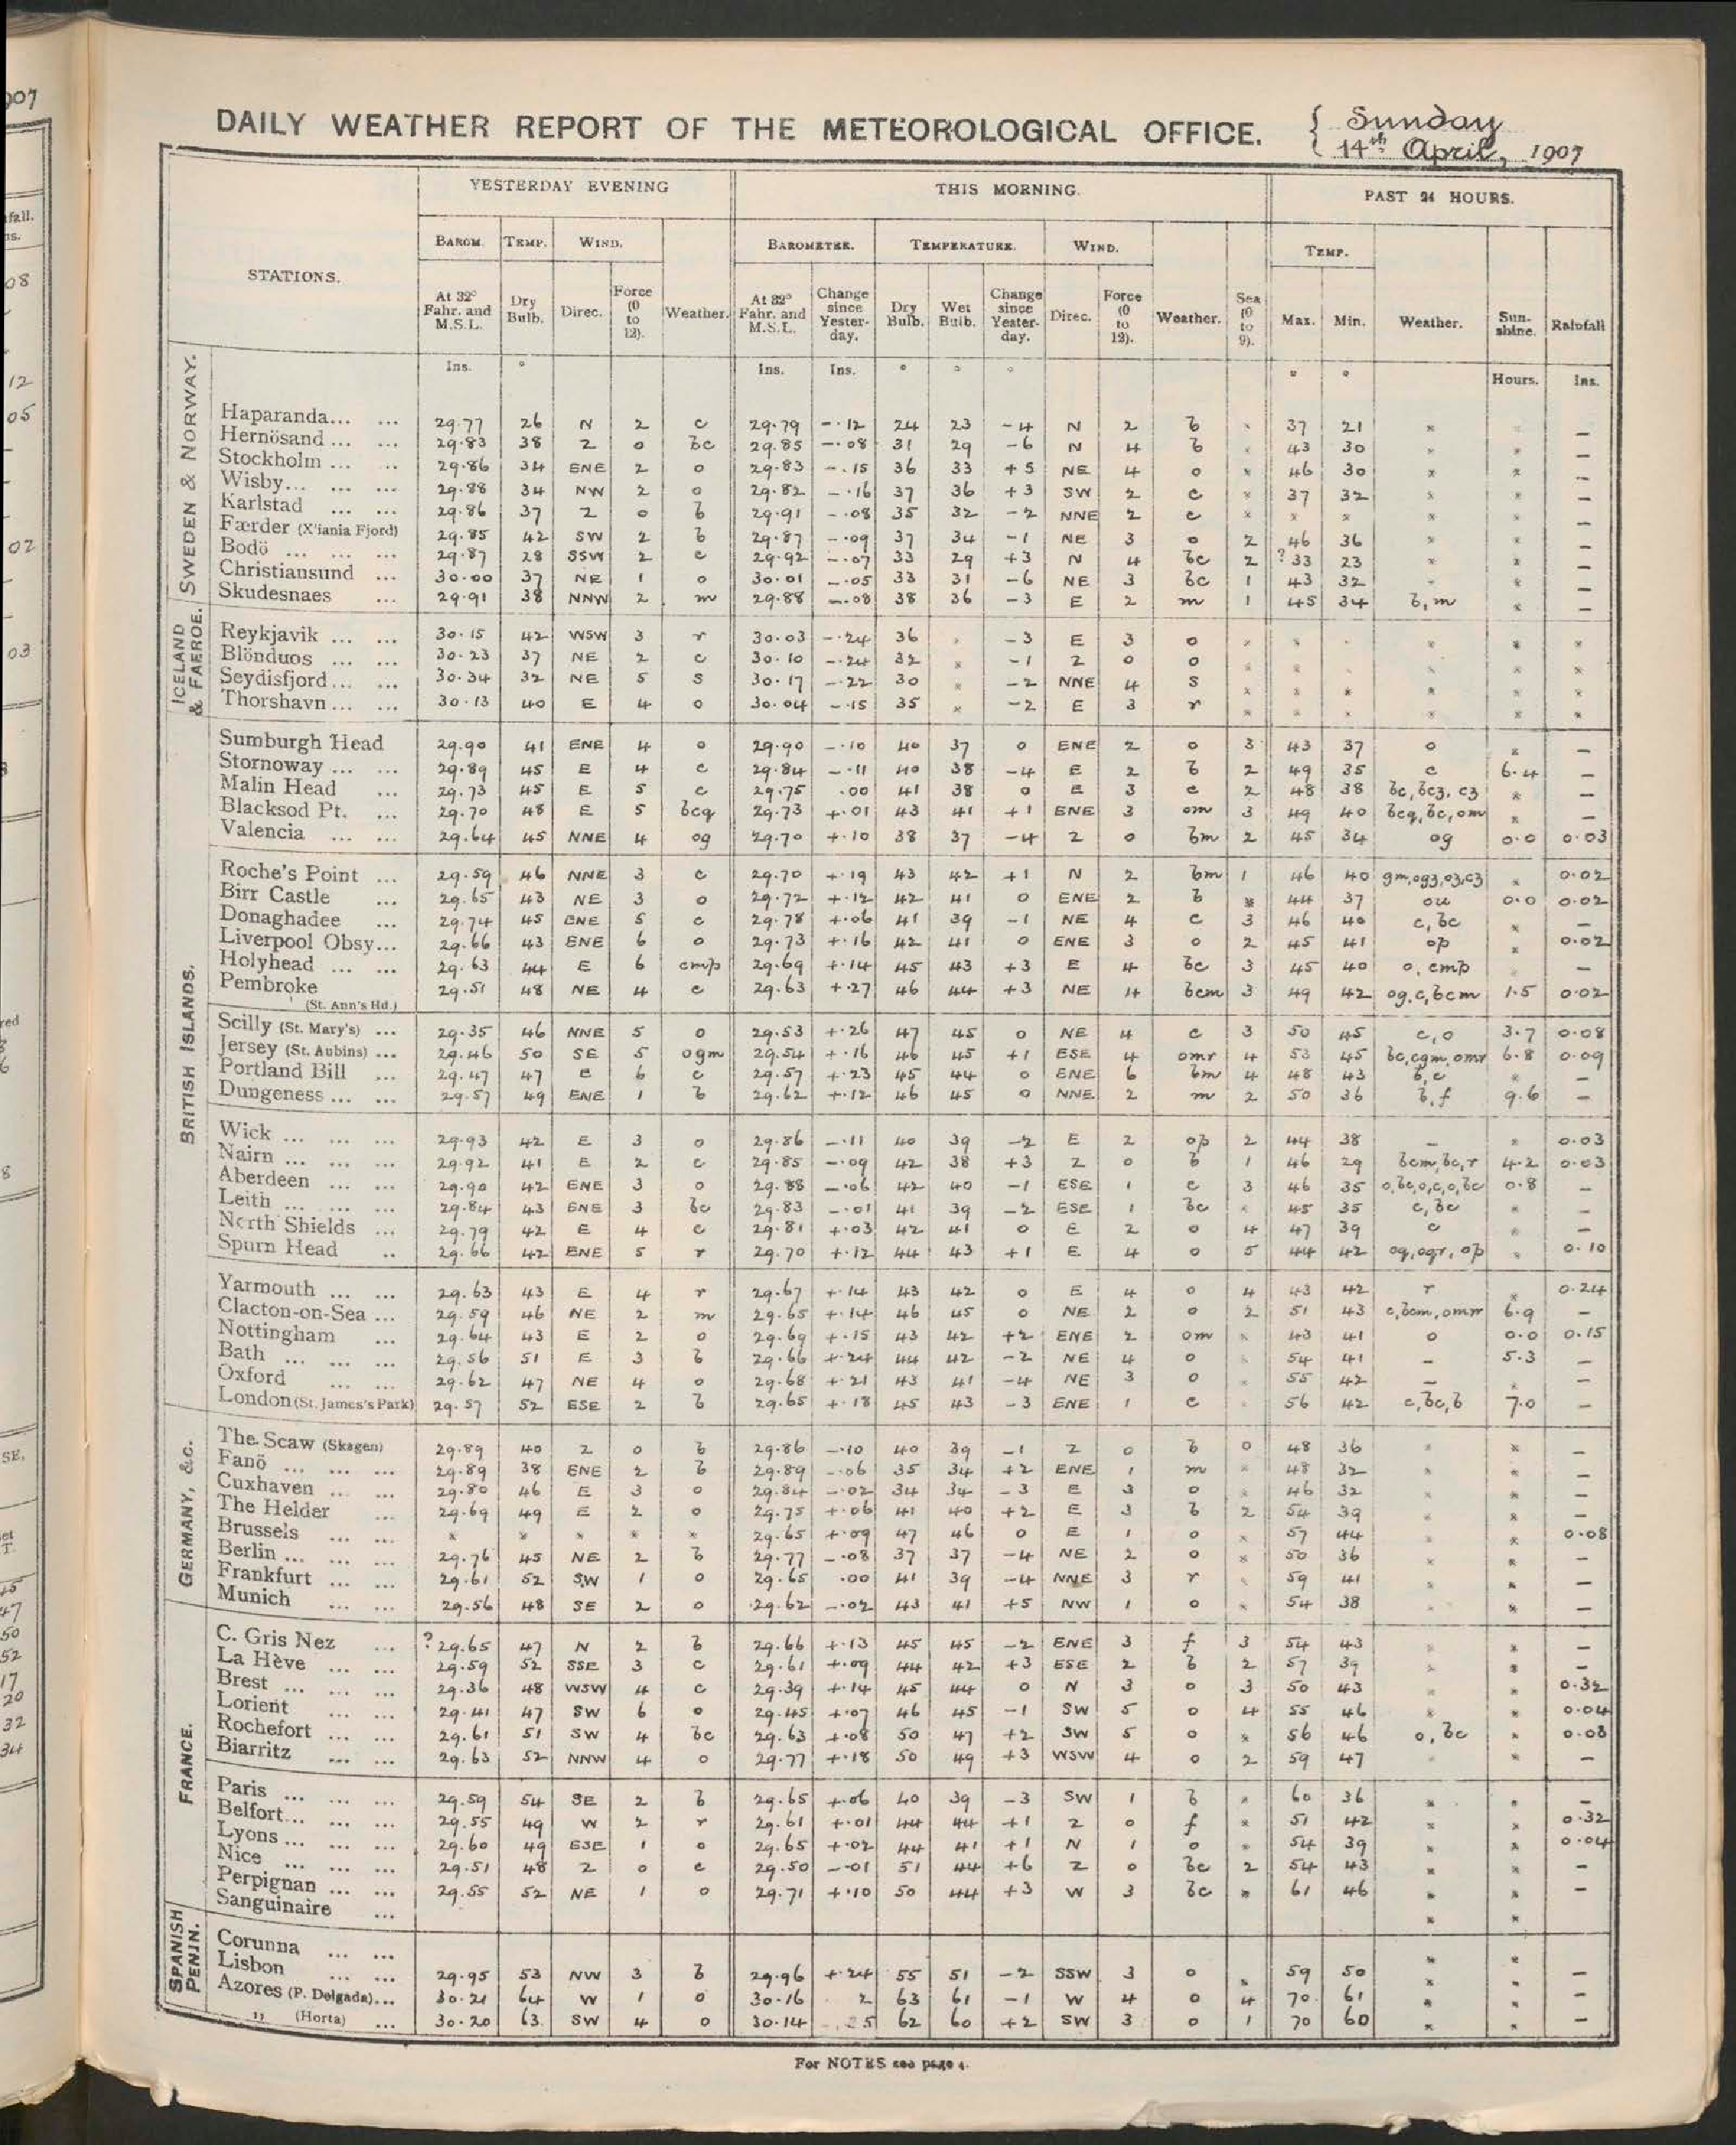 DAILY WEATHER REPORT OF THE METEOROLOGICAL OFFICE. { Sunday
14th April, 1907
YESTERDAY EVENING THIS MORNING. PAST 24 HOURS.
STATIONS. BAROM. TEMP. WIND. Weather. BAROMETER. TEMPERATURE. WIND. Weather. Sea (0 to 9). TEMP. Weather. Sunshine. Rainfall
At 32° Fahr. and M.S.L. Dry Bulb. Direc. Force (0 to 12). At 32° Fahr. and M.S.L. Change since Yesterday. Dry Bulb. Wet Bulb. Change since Yesterday. Direc. Force (0 to 12). Max. Min.
Ins. ° Ins. Ins. ° ° ° ° ° Hours. Ins.
SWEDEN & NORWAY.
Haparanda... ... 29.77 26 N 2 c 29.79 -.12 24 23 -4 N 2 b × 37 21 × × –
Hernösand ... ... 29.83 38 Z 0 bc 29.85 -.08 31 29 -6 N 4 b × 43 30 × × –
Stockholm ... ... 29.86 34 ENE 2 o 29.83 -.15 36 33 +5 NE 4 o × 46 30 × × –
Wisby... ... ... 29.88 34 NW 2 o 29.82 -.16 37 36 +3 SW 2 c × 37 32 × × –
Karlstad ... ... 29.86 37 Z 0 b 29.91 -.08 35 32 -2 NNE 2 c × × × × × –
Færder (X'iania Fjord) 29.85 42 SW 2 b 29.87 -.09 37 34 -1 NE 3 o 2 46 36 × × –
Bodö ... ... ... 29.87 28 SSW 2 c 29.92 -.07 33 29 +3 N 4 bc 2 ?33 23 × × –
Christiansund ... 30.00 37 NE 1 o 30.01 -.05 33 31 -6 NE 3 bc 1 43 32 × × –
Skudesnaes ... 29.91 38 NNW 2 m 29.88 -.08 38 36 -3 E 2 m 1 45 34 b, m × –
ICELAND & FAEROE.
Reykjavik ... ... 30.15 42 WSW 3 r 30.03 -.24 36 × -3 E 3 o × × × × × ×
Blönduos ... ... 30.23 37 NE 2 c 30.10 -.24 32 × -1 Z 0 o × × × × × ×
Seydisfjord... ... 30.34 32 NE 5 s 30.17 -.22 30 × -2 NNE 4 s × × × × × ×
Thorshavn ... ... 30.13 40 E 4 o 30.04 -.15 35 × -2 E 3 r × × × × × ×
BRITISH ISLANDS.
Sumburgh Head 29.90 41 ENE 4 o 29.90 -.10 40 37 0 ENE 2 o 3 43 37 o × –
Stornoway ... ... 29.89 45 E 4 c 29.84 -.11 40 38 -4 E 2 b 2 49 35 c 6.4 –
Malin Head ... 29.73 45 E 5 c 29.75 .00 41 38 0 E 3 c 2 48 38 bc, bcz, cz × –
Blacksod Pt. ... 29.70 48 E 5 bcq 29.73 +.01 43 41 +1 ENE 3 om 3 49 40 bcq, bc, om × –
Valencia ... ... 29.64 45 NNE 4 og 29.70 +.10 38 37 -4 Z 0 bm 2 45 34 og 0.0 0.03
Roche's Point ... 29.59 46 NNE 3 c 29.70 +.19 43 42 +1 N 2 bm 1 46 40 gm, ogz, oz, cz × 0.02
Birr Castle ... 29.65 43 NE 3 o 29.72 +.12 42 41 0 ENE 2 b × 44 37 ou 0.0 0.02
Donaghadee ... 29.74 45 ENE 5 c 29.78 +.06 41 39 -1 NE 4 c 3 46 40 c, bc × –
Liverpool Obsy... 29.66 43 ENE 6 o 29.73 +.16 42 41 0 ENE 3 o 2 45 41 op × 0.02
Holyhead ... ... 29.63 44 E 6 cmp 29.69 +.14 45 43 +3 E 4 bc 3 45 40 o, cmp × –
Pembroke (St. Ann's Hd.) 29.51 48 NE 4 c 29.63 +.27 46 44 +3 NE 4 bcm 3 49 42 og, c, bcm 1.5 0.02
Scilly (St. Mary's) ... 29.35 46 NNE 5 o 29.53 +.26 47 45 0 NE 4 c 3 50 45 c, o 3.7 0.08
Jersey (St. Aubins) ... 29.46 50 SE 5 ogm 29.54 +.16 46 45 +1 ESE 4 omr 4 53 45 bc, cgm, omr 6.8 0.09
Portland Bill ... 29.47 47 E 6 c 29.57 +.23 45 44 0 ENE 6 bm 4 48 43 b, c × –
Dungeness ... ... 29.57 49 ENE 1 b 29.62 +.12 46 45 0 NNE 2 m 2 50 36 b, f 9.6 –
Wick ... ... ... 29.93 42 E 3 o 29.86 -.11 40 39 -2 E 2 op 2 44 38 – × 0.03
Nairn ... ... ... 29.92 41 E 2 c 29.85 -.09 42 38 +3 Z 0 b 1 46 29 bcm, bc, r 4.2 0.03
Aberdeen ... ... 29.90 42 ENE 3 o 29.88 -.06 42 40 -1 ESE 1 c 3 46 35 o, bc, o, c, o, bc 0.8 –
Leith ... ... ... 29.84 43 ENE 3 bc 29.83 -.01 41 39 -2 ESE 1 bc × 45 35 c, bc × –
North Shields ... 29.79 42 E 4 c 29.81 +.03 42 41 0 E 2 o 4 47 39 c × –
Spurn Head .. 29.66 42 ENE 5 r 29.70 +.12 44 43 +1 E 4 o 5 44 42 oq, oqr, op × 0.10
Yarmouth ... ... 29.63 43 E 4 r 29.67 +.14 43 42 0 E 4 o 4 43 42 r × 0.24
Clacton-on-Sea ... 29.59 46 NE 2 m 29.65 +.14 46 45 0 NE 2 o 2 51 43 c, bcm, omr 6.9 –
Nottingham ... 29.64 43 E 2 o 29.69 +.15 43 42 +2 ENE 2 om × 43 41 o 0.0 0.15
Bath ... ... ... 29.56 51 E 3 b 29.66 +.24 44 42 -2 NE 4 o × 54 41 – 5.3 –
Oxford ... ... 29.62 47 NE 4 o 29.68 +.21 43 41 -4 NE 3 o × 55 42 – × –
London (St. James's Park) 29.57 52 ESE 2 b 29.65 +.18 45 43 -3 ENE 1 c × 56 42 c, bc, b 7.0 –
GERMANY, &c.
The Scaw (Skagen) 29.89 40 Z 0 b 29.86 -.10 40 39 -1 Z 0 b 0 48 36 × × –
Fanö ... ... ... 29.89 38 ENE 2 b 29.89 -.06 35 34 +2 ENE 1 m × 48 32 × × –
Cuxhaven ... ... 29.80 46 E 3 o 29.84 -.02 34 34 -3 E 3 o × 46 32 × × –
The Helder ... 29.69 49 E 2 o 29.75 +.06 41 40 +2 E 3 b 2 54 39 × × –
Brussels ... ... × × × × × 29.65 +.09 47 46 0 E 1 o × 57 44 × × 0.08
Berlin ... ... ... 29.76 45 NE 2 b 29.77 -.08 37 37 -4 NE 2 o × 50 36 × × –
Frankfurt ... ... 29.61 52 SW 1 o 29.65 .00 41 39 -4 NNE 3 r × 59 41 × × –
Munich ... ... 29.56 48 SE 2 o 29.62 -.02 43 41 +5 NW 1 o × 54 38 × × –
FRANCE.
C. Gris Nez ... ?29.65 47 N 2 b 29.66 +.13 45 45 -2 ENE 3 f 3 54 43 × × –
La Hève ... ... 29.59 52 SSE 3 c 29.61 +.09 44 42 +3 ESE 2 b 2 57 39 × × –
Brest ... ... ... 29.36 48 WSW 4 c 29.39 +.14 45 44 0 N 3 o 3 50 43 × × 0.32
Lorient ... ... 29.41 47 SW 6 o 29.45 +.07 46 45 -1 SW 5 o 4 55 46 × × 0.04
Rochefort ... ... 29.61 51 SW 4 bc 29.63 +.08 50 47 +2 SW 5 o × 56 46 o, bc × 0.08
Biarritz ... ... 29.63 52 NNW 4 o 29.77 +.18 50 49 +3 WSW 4 o 2 59 47 × × –
Paris ... ... ... 29.59 54 SE 2 b 29.65 +.06 40 39 -3 SW 1 b × 60 36 × × –
Belfort... ... ... 29.55 49 W 2 r 29.61 +.01 44 44 +1 Z 0 f × 51 42 × × 0.32
Lyons ... ... ... 29.60 49 ESE 1 o 29.65 +.02 44 41 +1 N 1 o × 54 39 × × 0.04
Nice ... ... ... 29.51 48 Z 0 c 29.50 -.01 51 44 +6 Z 0 bc 2 54 43 × × –
Perpignan ... ... 29.55 52 NE 1 o 29.71 +.10 50 44 +3 W 3 bc × 61 46 × × –
Sanguinaire ... × ×
SPANISH PENIN.
Corunna ... ... × ×
Lisbon ... ... 29.95 53 NW 3 b 29.96 +.24 55 51 -2 SSW 3 o × 59 50 × × –
Azores (P. Delgada)... 30.21 64 W 1 o 30.16 2 63 61 -1 W 4 o 4 70 61 × × –
" (Horta) ... 30.20 63 SW 4 o 30.14 -.25 62 60 +2 SW 3 o 1 70 60 × × –
For NOTES see page 4.
907
fall.
ns.
08
12
05
02
03
red
8
SE.
47
50
52
17
20
32
34